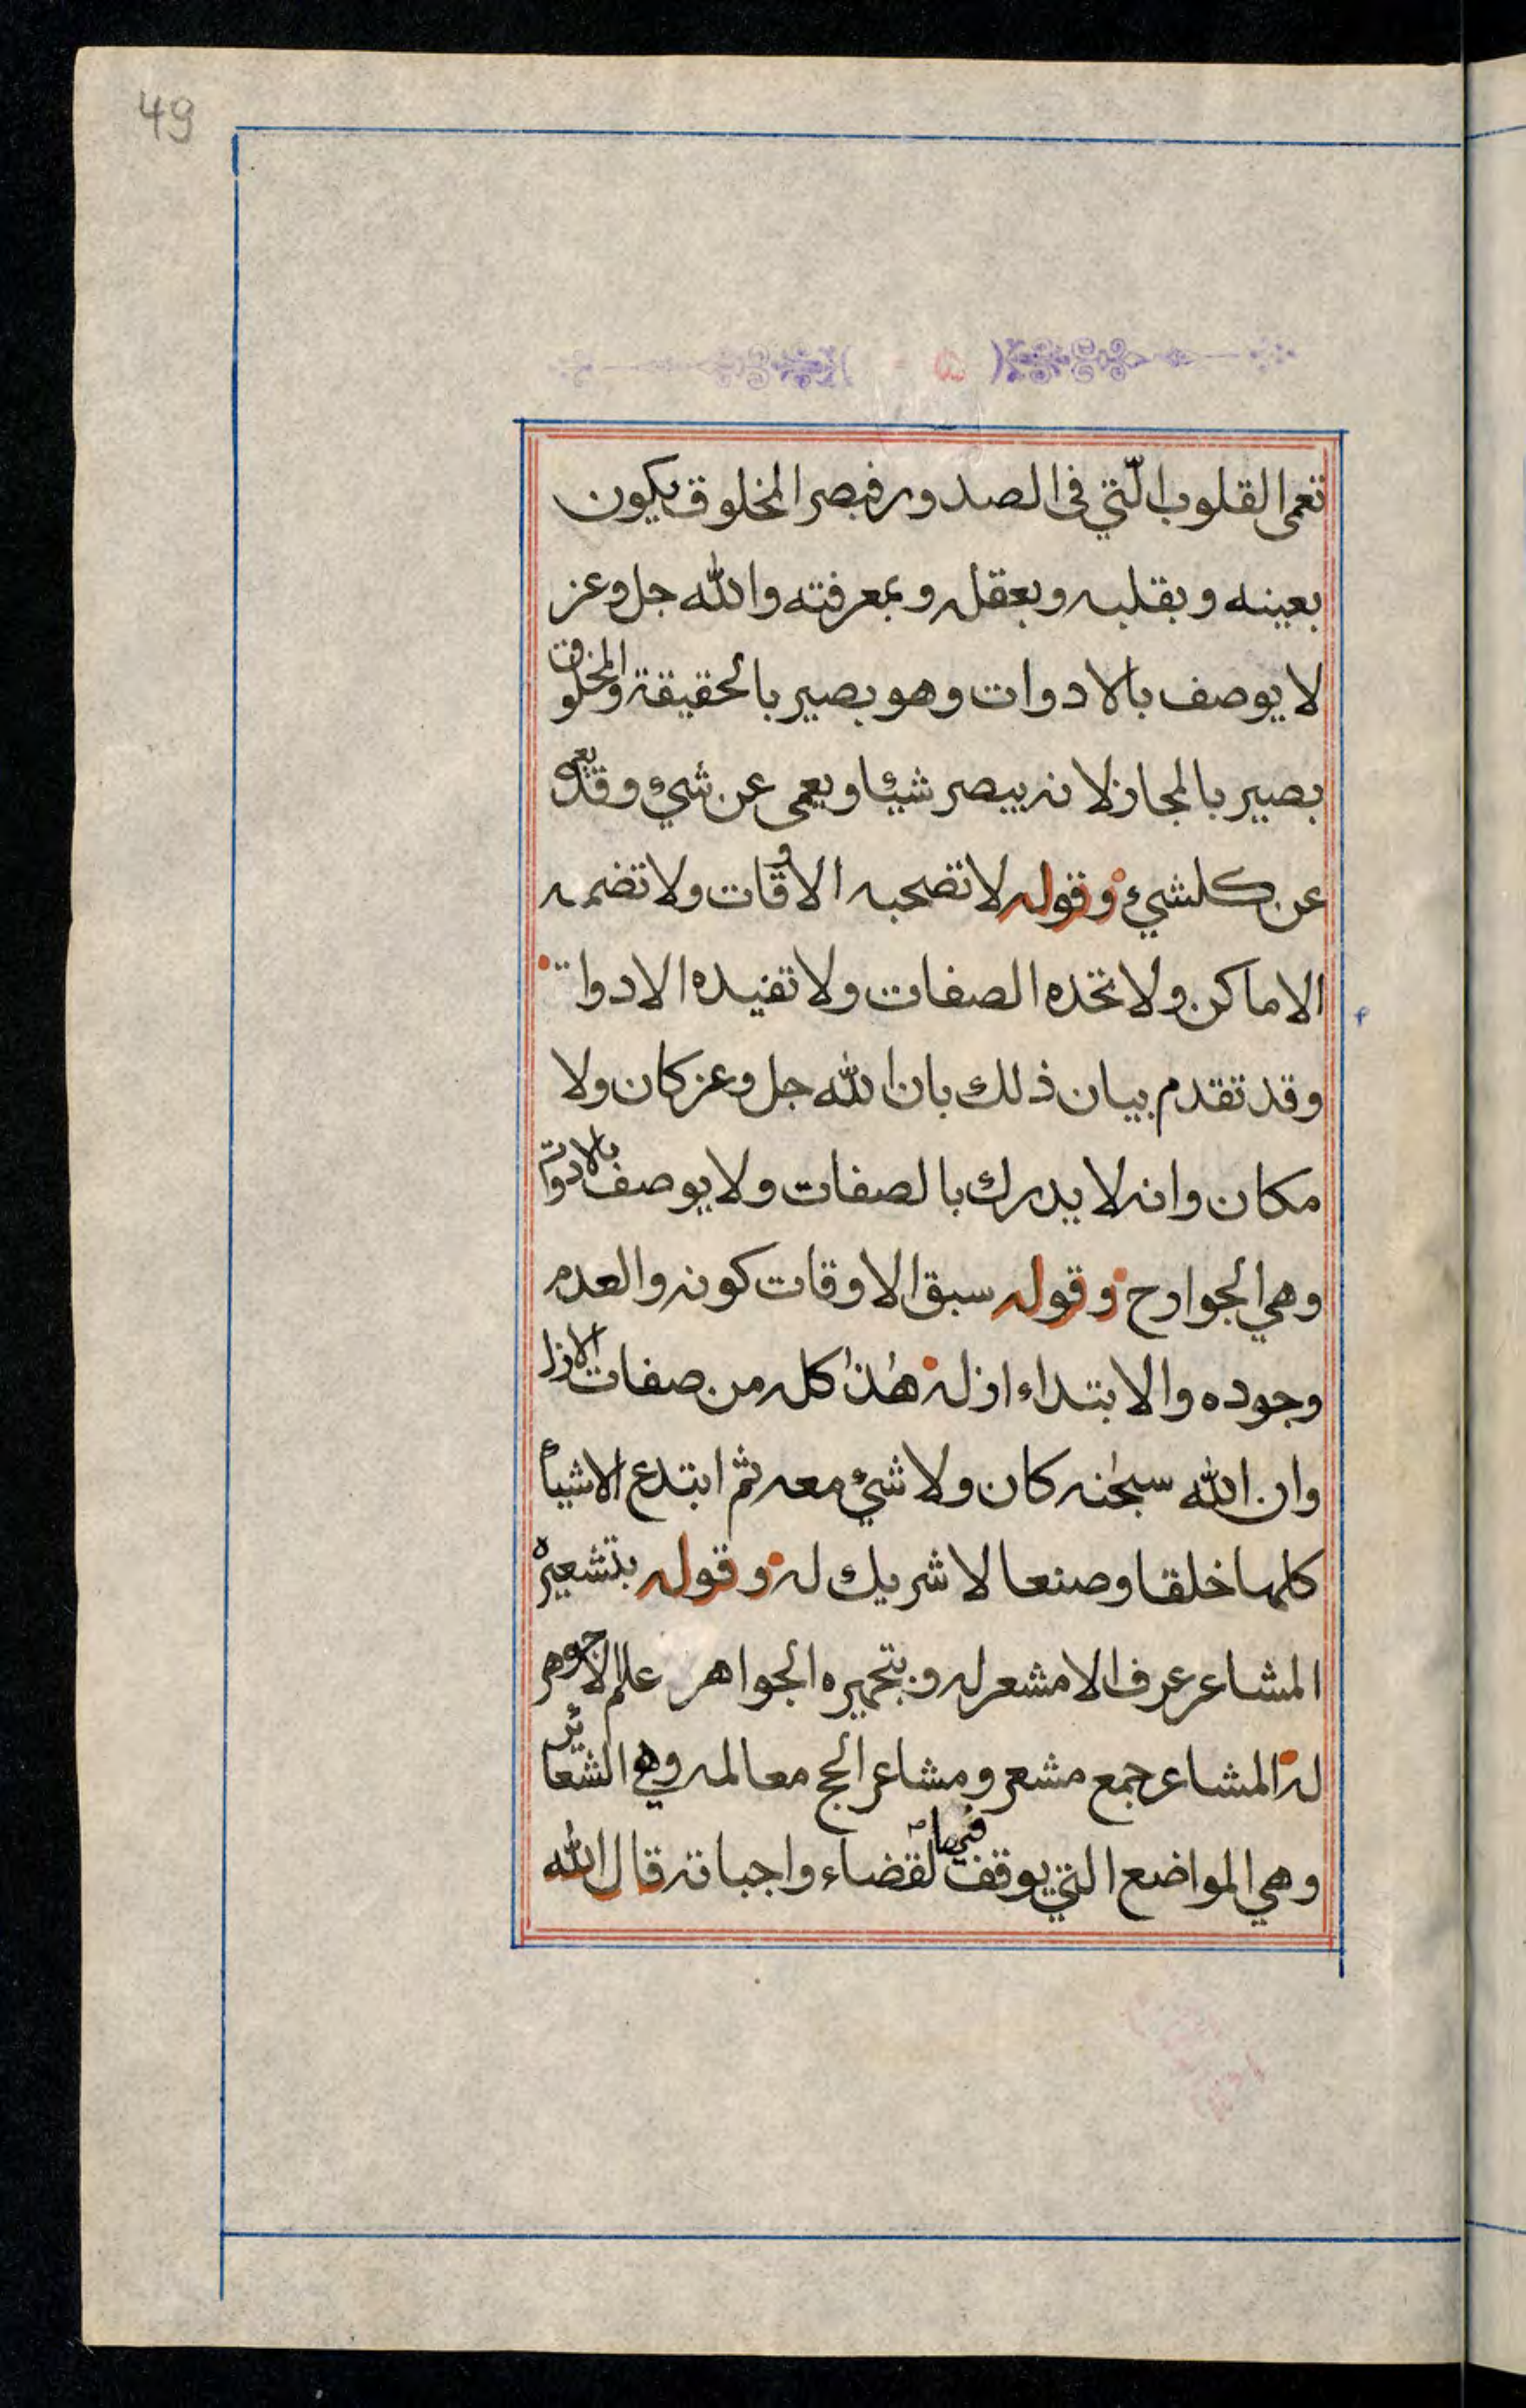 49
تعمى القلوب الّتي في الصدور فبصر المخلوق يكون
بعينه وبقلبه وبعقله وبمعرفته والله جل وعز
لا يوصف بالادوات وهو بصير بالحقيقة والمخلوق
بصير بالمجاز لانه يبصر شيئا ويعمى عن شيء وقد يعمى
عن كلشيء وقوله لا تصحبه الاوقات ولا تضمه
الاماكن ولا تحده الصفات ولا تفيده الادوات
وقد تقدم بيان ذلك بان الله جل وعز كان ولا
مكان وانه لا يدرك بالصفات ولا يوصف بالادوات
وهي الجوارح وقوله سبق الاوقات كونه والعدم
وجوده والابتداء ازله هذا كله من صفات الازل
وان الله سبحنه كان ولا شيء معه ثم ابتدع الاشياء
كلها خلقا وصنعا لا شريك له وقوله بتشعيره
المشاعر عرف الا مشعر له وبتجهيره الجواهر علم الا جوهر
له المشاعر جمع مشعر ومشاعر الحج معالمه وهي الشعائر
وهي المواضع التي يوقف فيها لقضاء واجباته قال الله